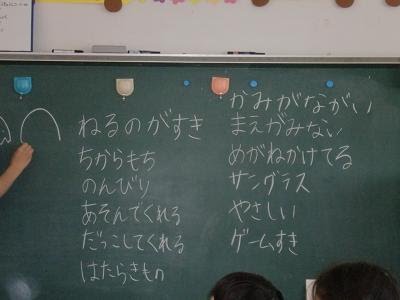 ねるのがすき
ちからもち
のんびり
あそんでくれる
だっこしてくれる
はたらきもの
かみがながい
まえがみない
めがねかけてる
サングラス
やさしい
ゲームすき